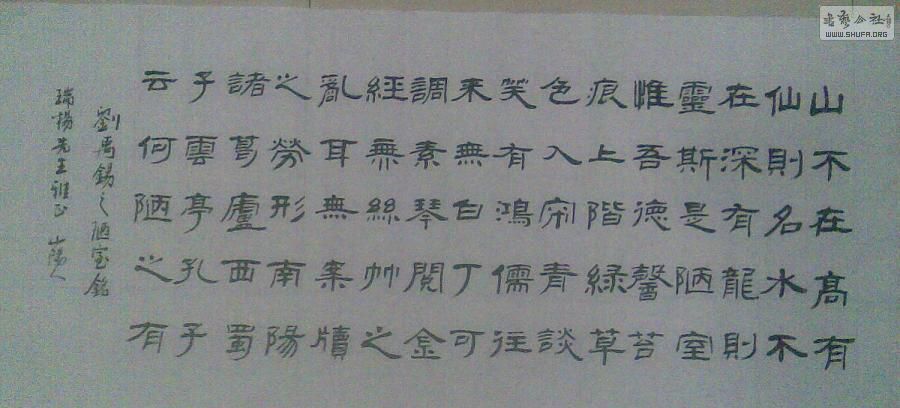 山不在高有
仙則名水不
在深有龍則
靈斯是陋室
惟吾德馨苔
痕上階綠草
色入帘青談
笑有鴻儒往
来無白丁可
調素琴閱金
經無絲竹之
亂耳無案牘
之勞形南陽
諸葛廬西蜀
子雲亭孔子
云何陋之有
劉禹錫之陋室銘
瑞楊先生雅正
書藝公社
WWW.SHUFA.ORG